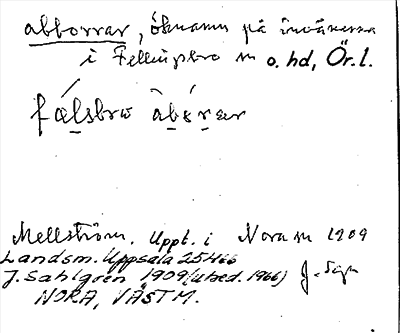 abborrar, öknamn på invånarna
i Fellingsbro sn o. hd, Ör. l.
fǽlsbrω àbɛ́rar
Mellström. Uppt. i Nora sn 1909
Landsm. Uppsala 25466
J. Sahlgren 1909 (utsed. 1966) J. Sgn
NORA, VÄSTM.